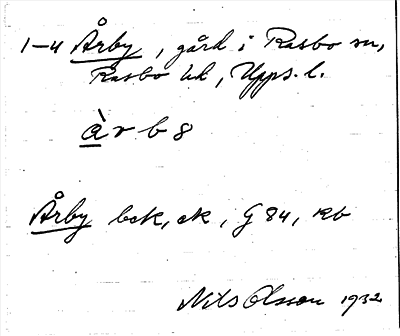 1-4 Årby, gård i Rasbo sn,
Rasbo hd, Upps. l.
àrb8
Årby bek, ek, G 84, Rb
Nils Olsson 1932